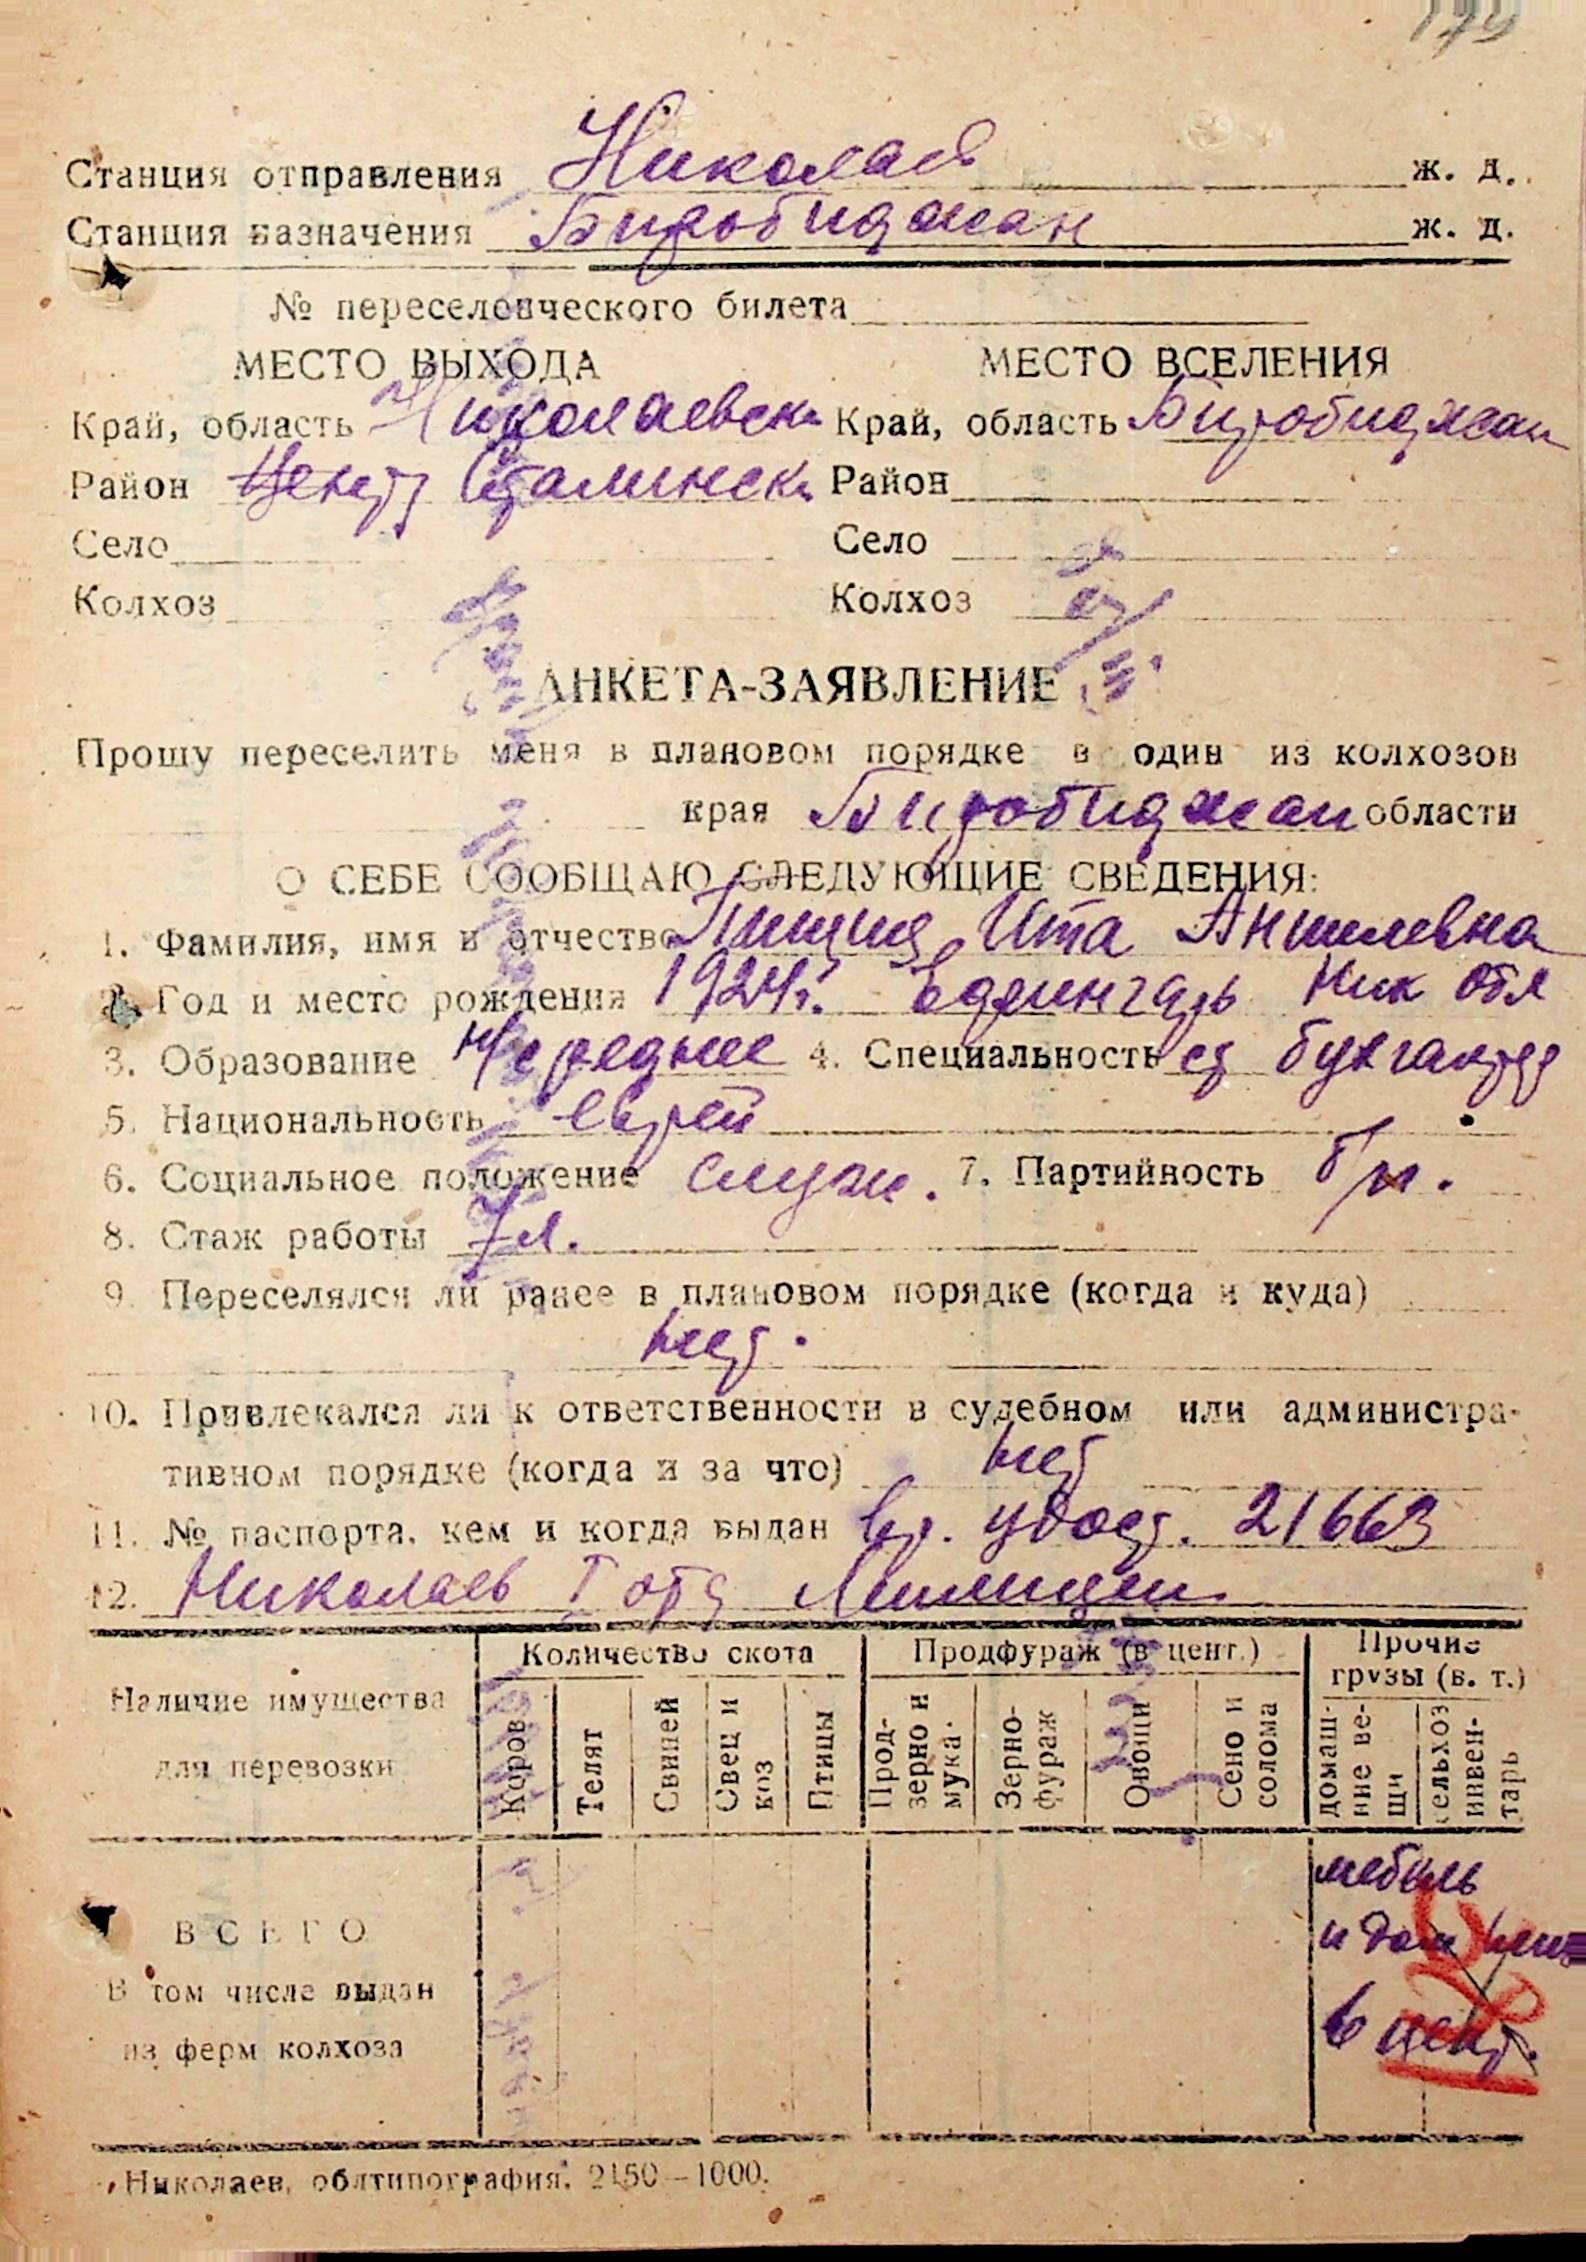 179
Станция отправления Николаев ж. д.
Станция назначения Биробиджан ж. д.
№ переселенческого билета
МЕСТО ВЫХОДА МЕСТО ВСЕЛЕНИЯ
Край, область Николаевск Край, область Биробиджан
Район Центр Сталинск Район
Село Село
Колхоз Колхоз
АНКЕТА-ЗАЯВЛЕНИЕ
Прошу переселить меня в плановом порядке в один из колхозов
края Биробиджан области
О СЕБЕ СООБЩАЮ СЛЕДУЮЩИЕ СВЕДЕНИЯ:
1. Фамилия, имя и отчество Ита Аншелевна
2. Год и место рождения 1924г. Ник обл
3. Образование н/среднее 4. Специальность бухгалтер
5. Национальность еврей
6. Социальное положение служ. 7. Партийность б/п.
8. Стаж работы 7 л.
9. Переселялся ли ранее в плановом порядке (когда и куда)
нет.
10. Привлекался ли к ответственности в судебном или администра-
тивном порядке (когда и за что) нет
11. № паспорта, кем и когда выдан вр. удост. 21663
12. Николаев I отд Милиции
Наличие имущества для перевозки
Количество скота
Продфураж (в цент.)
Прочие грузы (в. т.)
Коров
Телят
Свиней
Овец и коз
Птицы
Прод-зерно и мука.
Зерно-фураж
Овощи
Сено и солома
домаш-ние ве-щи
сельхоз инвен-тарь
ВСЕГО
В том числе выдан
из ферм колхоза
мебель
и дом
6 цент.
Николаев, облтипография. 2150—1000.